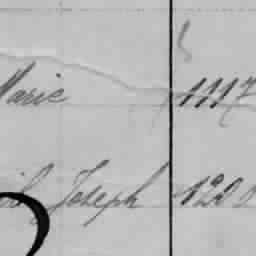 Marie 1117
Joseph 120